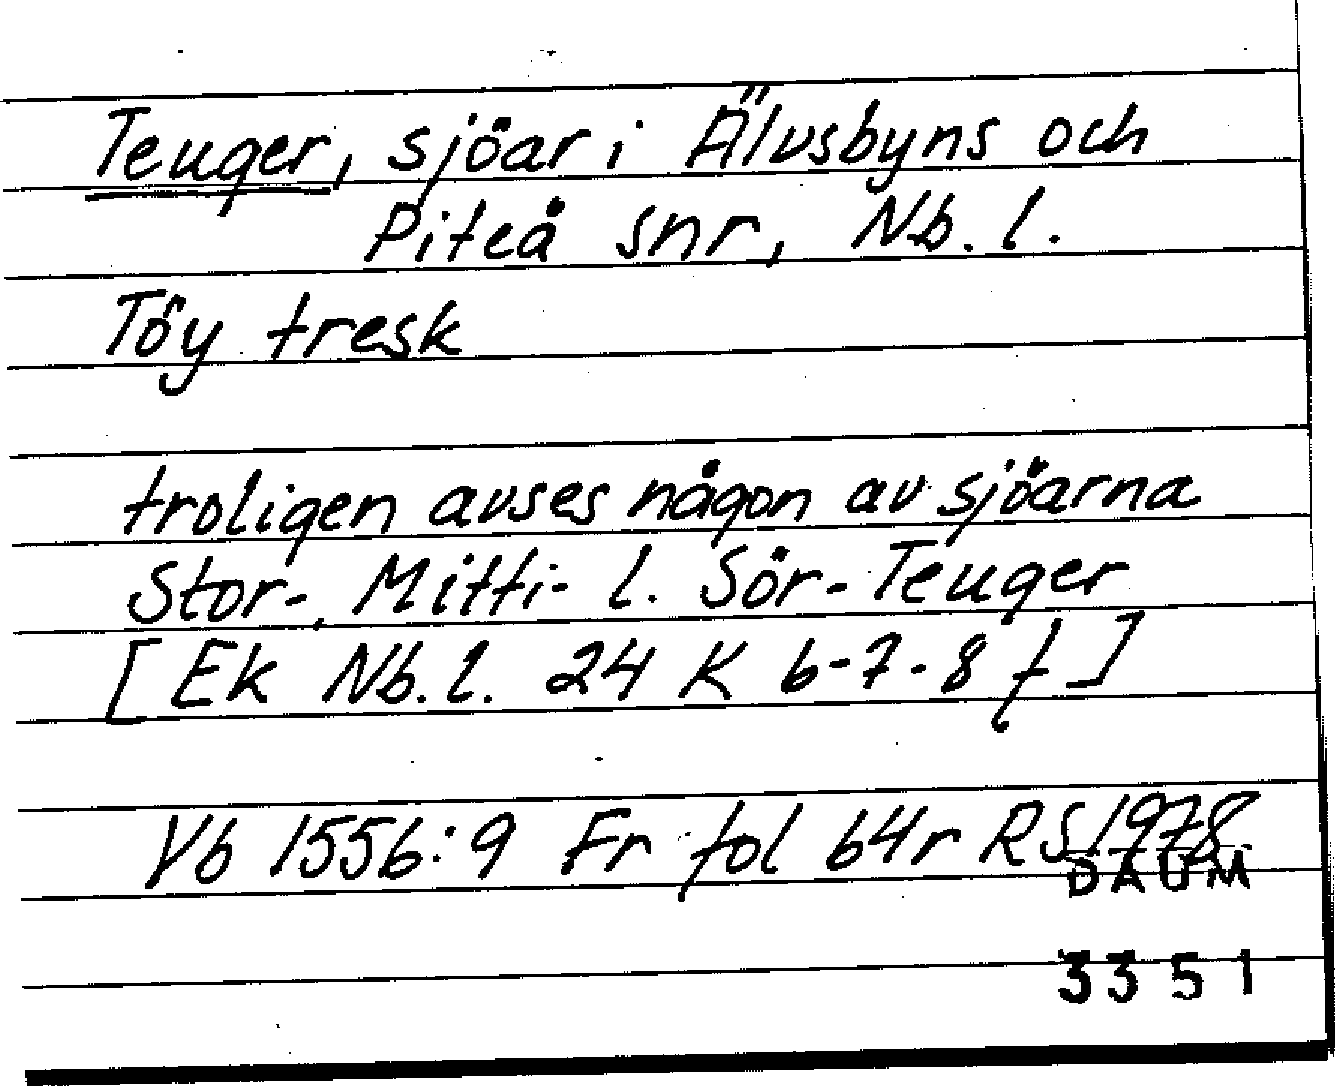 Teuger, sjöar i Älvsbyns och
Piteå snr, Nb. l.
Töy tresk
troligen avses någon av sjöarna
Stor-, Mitti- l. Sör-Teuger
[Ek Nb. l. 24 K 6-7-8 f]
Vb 1556:9 Fr fol 64r RS 1978
DAUM
3351